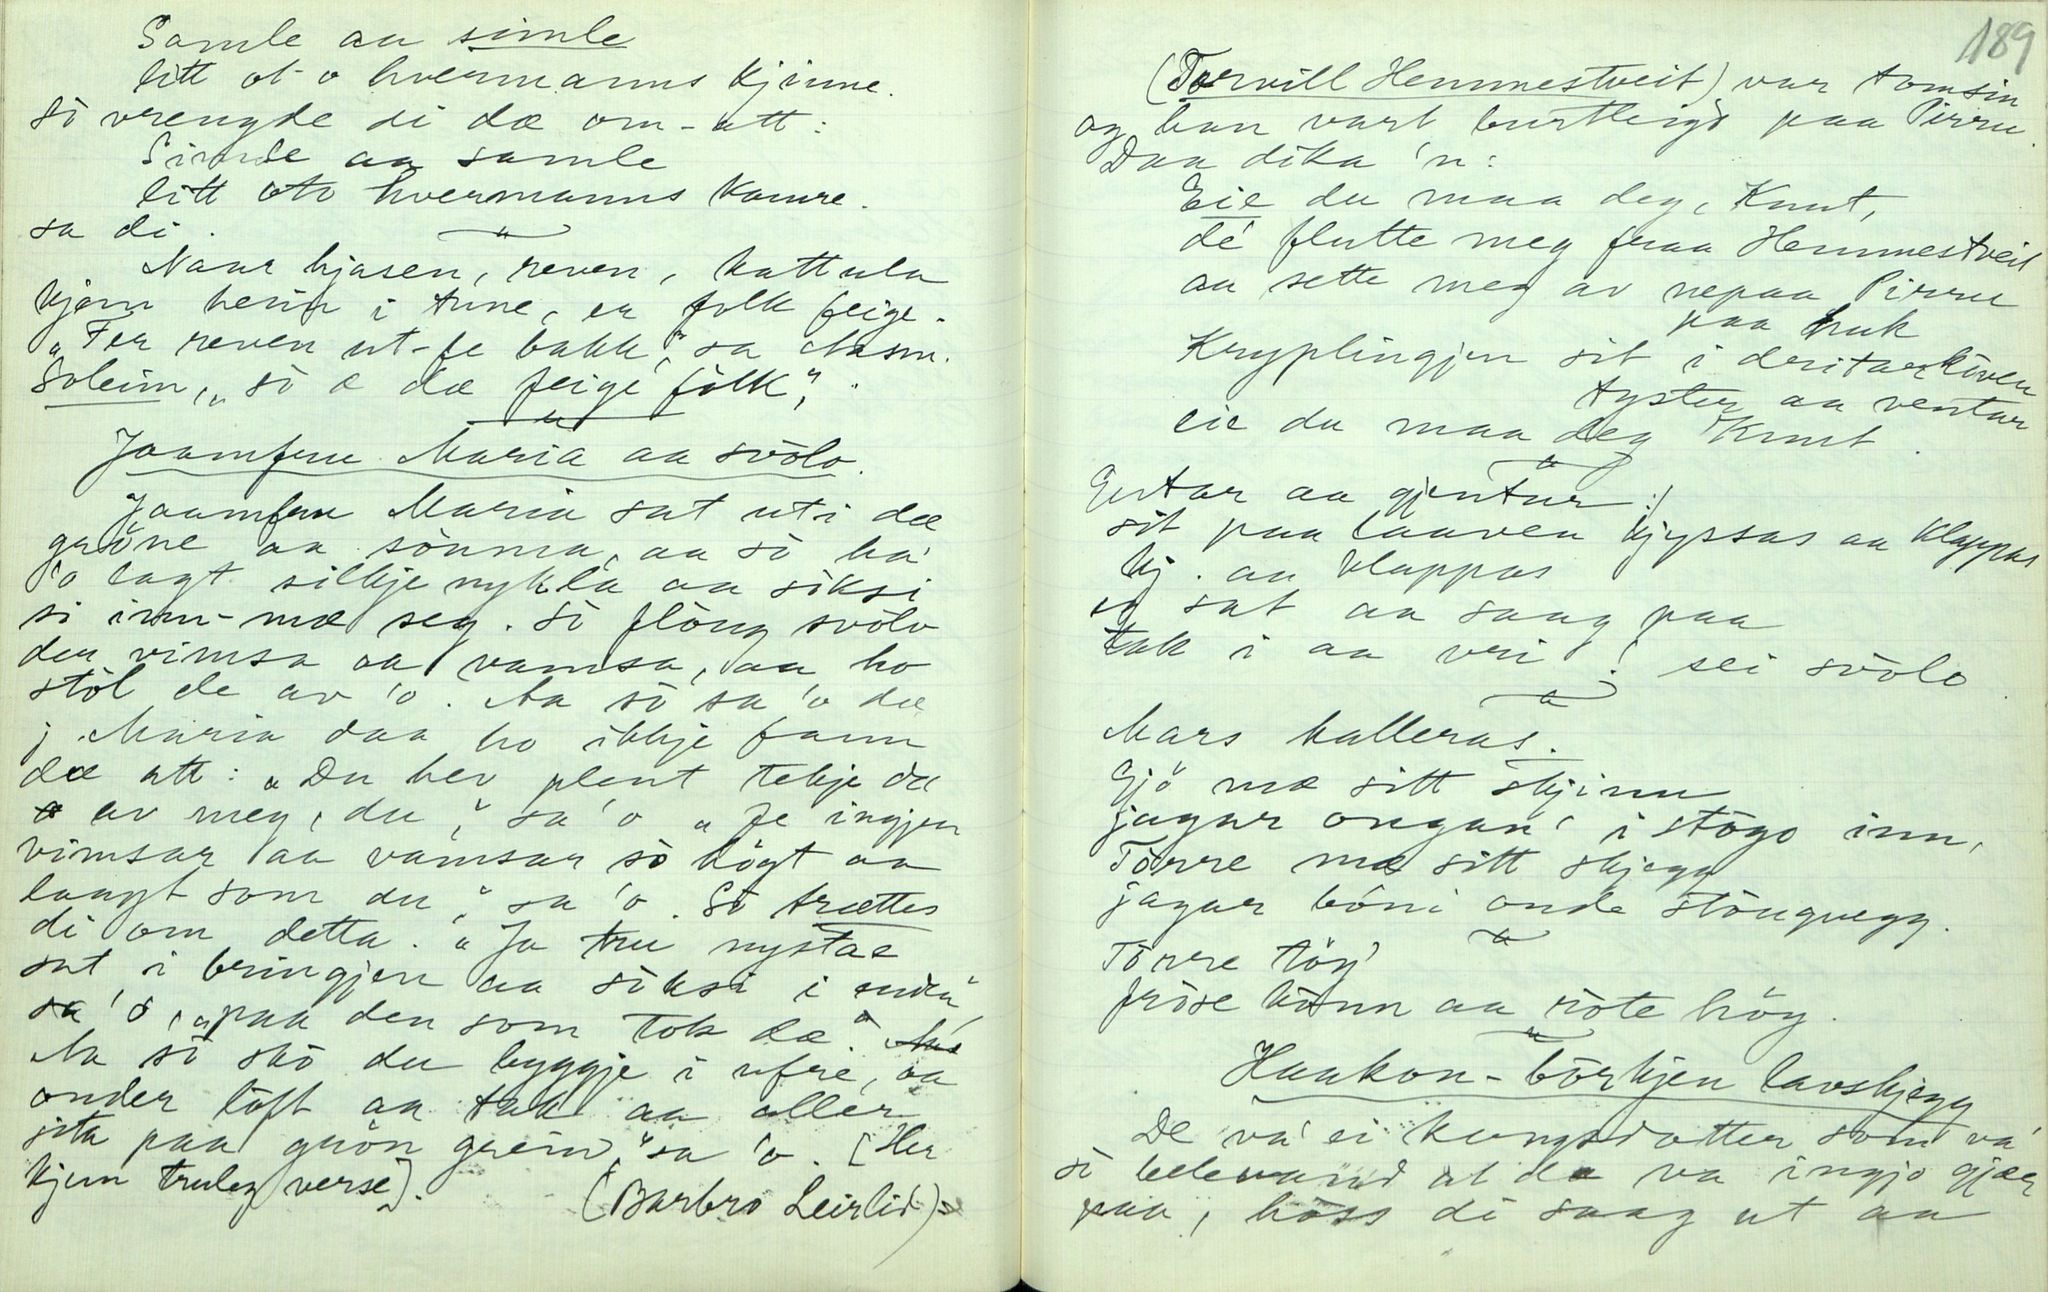 Samle aa simle
litt ot o hvermanns kjinne.
Sò vrengde di dæ om-att:
Simle aa samle
litt oto hvermanns kamre.
sa di.
Naar hjasen, reven, kattula
kjem heim i tune, er folk feige.
"Fer reven ut-fe bakk," sa Aasm.
Soleim, "sò æ dæ feige fôlk,".
Jaamfru Maria aa svòlo.
Jaamfru Maria sat uti dæ
gröne aa sònma, aa sò ha'
'o lagt silkjenykla aa sòksi
si inn-mæ seg. Sò flöug svòlo
der vimsa aa vamsa, aa ho
stòl de av 'o. Aa sò sa 'o dæ
j. Maria daa ho ikkje fann
dæ att: "Du hev plent tekje dæ
av meg, du," sa 'o "Fe ingjen
vimsar aa vamsar sò högt aa
langt som du," sa 'o. Sò trættes
di om detta. "Ja tru nystae
sat i bringjen aa sòksi i enden"
sa 'o, "paa den som tok dæ."
Aa sò skò du byggje i ufre, aa
onder lòft aa tak aa aller
sita paa grön grein," sa 'o. [Her
kjem truleg verse].
(Barbro Leirlid)
189
(Torvill Hemmestveit) var tomsin
og han vart burtleigd paa Pirru.
Daa dikta 'n:
Eie du maa deg, Knut,
dé flutte meg fraa Hemmestveit
aa sette meg av nepaa Pirru
paa huk
Kryplingjen sit i dritarkòven
tyster aa ventar
eie du maa deg Knut.
Gutar aa gjentur :/
sit paa laaven kjyssas aa klappas
kj. aa klappas
eg sat aa saag paa
tak i aa vri ! sei svòlo.
Mars kalleras.
Gjö mæ sitt skjinn
jagar ongan' i stògo inn,
Tòrre mæ sitt skjegg
jagar bóni onde stòuguegg.
Tòrre tög'
fròse kònn aa ròte höy.
Haakon-bòrkjen lavskjegg
De va' ei kungsdotter som va'
sò belevand at de va ingjo gjær
paa, hòss di saag ut aa